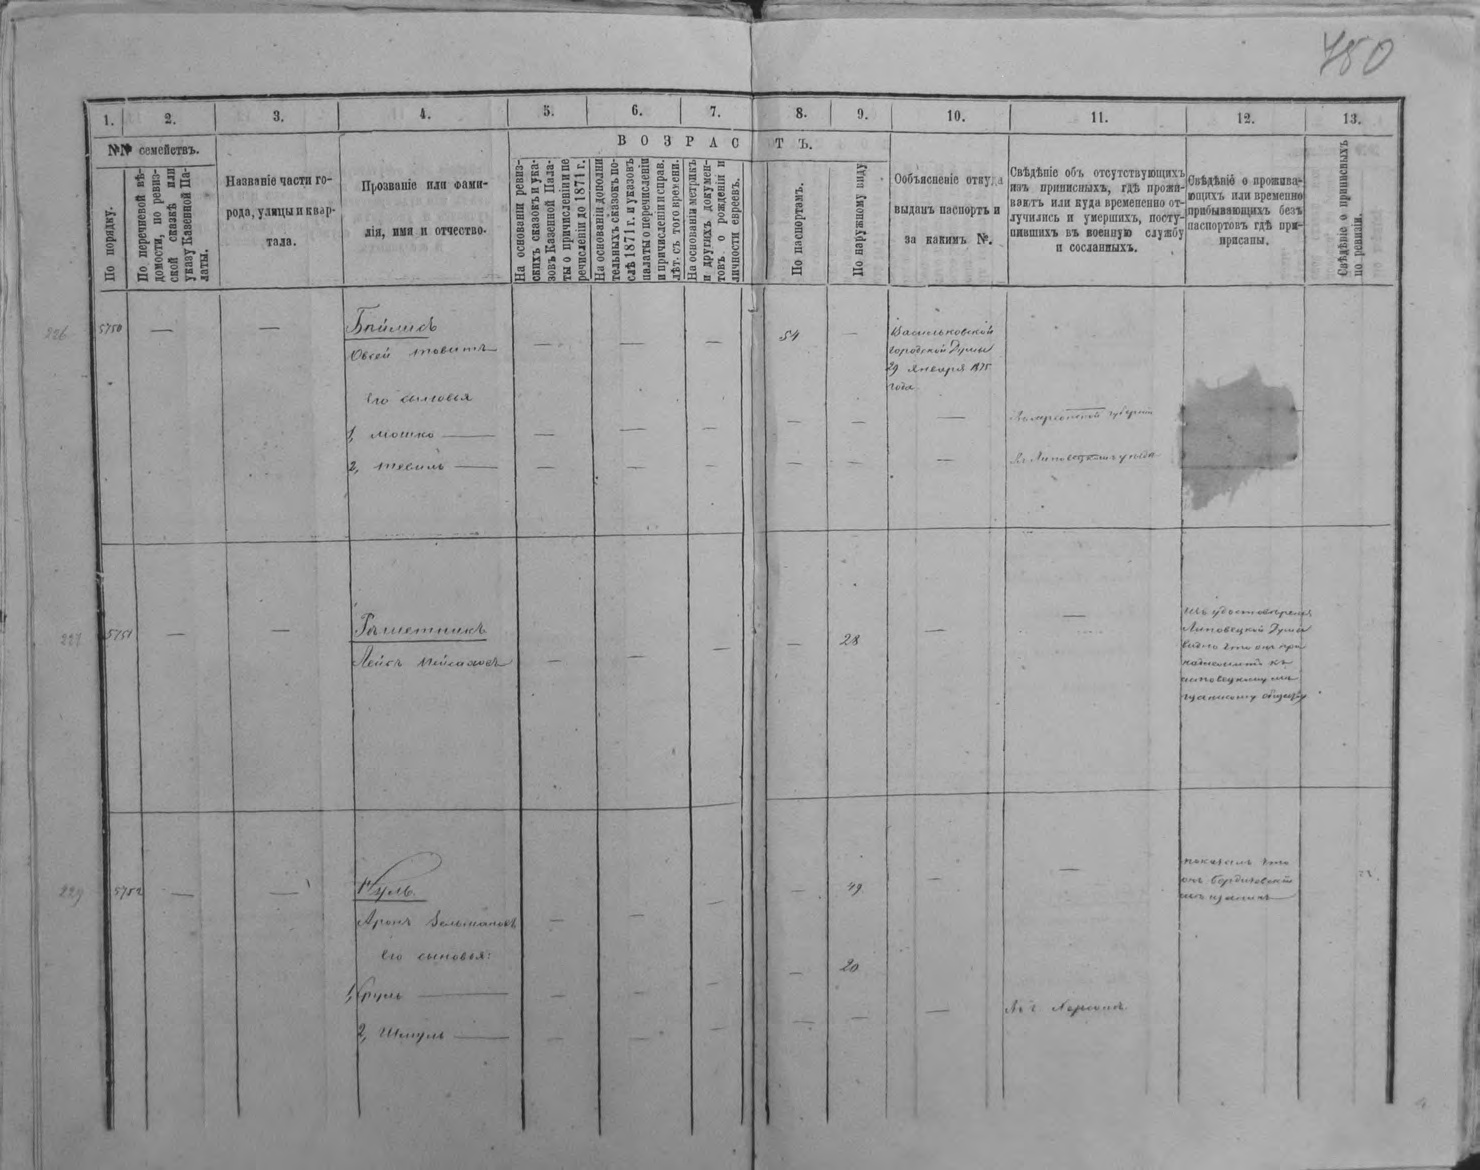 780
1. 2. 3. 4. 5. 6. 7. 8. 9. 10. 11. 12. 13.
№№ семействъ.
По порядку.
По перечневой вѣ-
домости, по ревиз-
ской сказкѣ или
указу Казенной Па-
латы.
Названіе части го-
рода, улицы и квар-
тала.
Прозваніе или фами-
лія, имя и отчество.
ВОЗРАСТЪ.
На основаніи ревиз-
скихъ сказокъ и ука-
зовъ Казенной Пала-
ты о причисленіи и пе
речисленіи до 1871 г.
На основаніи дополни
тельныхъ сказокъ по-
слѣ 1871 г. и указовъ
палаты о перечисленіи
и причисленіи и справ.
лѣт. съ того времени.
На основаніи метрикъ
и другихъ докумен-
товъ о рожденіи и
личности евреевъ.
По паспортамъ.
По наружному виду
Объясненіе откуда
выданъ паспортъ и
за какимъ №.
Свѣдѣніе объ отсутствующихъ
изъ приписныхъ, гдѣ прожи-
ваютъ или куда временно от-
лучились и умершихъ, посту-
пившихъ въ военную службу
и сосланныхъ.
Свѣдѣніе о прожива-
ющихъ или временно
прибывающихъ безъ
паспортовъ гдѣ при-
писаны.
Свѣдѣніе о приписныхъ
по ревизіи.
226 5750 — — Бейлисъ
Овсей Товитъ — — — 54 — Васильковской
городской Думы
29 января 1875
года
Его сыновья
1, Мошко — — — — — — — Херсонской губерніи
2, — — — — — — — Въ Липовецкомъ уѣздѣ
227 5751 — — Рашетникъ — 28 — —
Лейбъ — — —
изъ удостовѣренія
Липовецкой Думы
видно что онъ при
надлежитъ къ
липовецкому мѣ
щанскому обществу
229 5752 — — Куль — 49 — —
Аронъ — — —
показалъ что
онъ бердичевскій
мѣщанинъ
Его сыновья:
1, — — — — — 20
2, Шмуль — — — — — — — Въ г. Херсонѣ